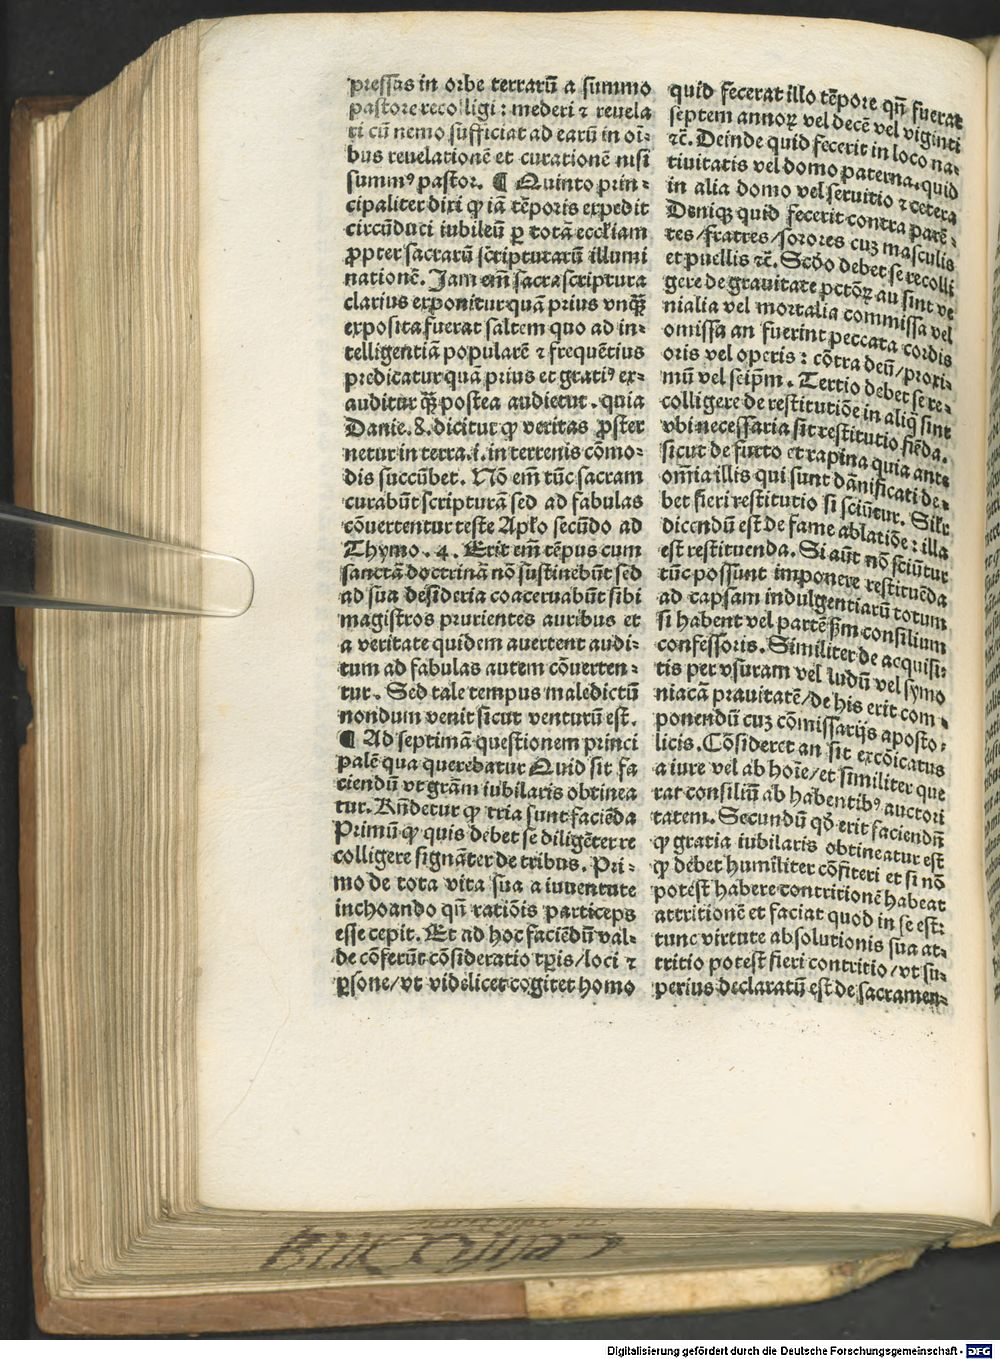 pressas in orbe terrarū a summo
pastore recolligi : mederi ⁊ reuela
ri cū nemo sufficiat ad earū in oī-
bus reuelationē et curationē nisi
summꝰ pastor. ¶ Quinto prin-
cipaliter dixi ꝙ iā tēporis expedit
circūduci iubileū ꝑ totā eccl̄iam
ꝓpter sacrarū scripturarū illumi
nationē. Jam em̄ sacra scriptura
clarius exponitur quā prius vnꝗ̄
exposita fuerat saltem quo ad in-
telligentiā popularē ⁊ frequētius
predicatur quā prius et gratiꝰ ex-
auditur ꝗ̄ postea audietur. quia
Danie. 8. dicitur ꝙ veritas ꝓster
netur in terra .i. in terrenis cōmo-
dis succūbet. Nō em̄ tūc sacram
curabūt scripturā sed ad fabulas
cōuertentur teste Apl̄o secūdo ad
Thymo. 4. Erit em̄ tēpus cum
sanctā doctrinā nō sustinebūt sed
ad sua desideria coaceruabūt sibi
magistros prurientes auribus et
a veritate quidem auertent audi-
tum ad fabulas autem cōuerten-
tur. Sed tale tempus maledictū
nondum venit sicut venturū est.
¶ Ad septimā questionem princi
palē qua querebatur Quid sit fa
ciendū vt grām iubilaris obtinea
tur. Rn̄detur ꝙ tria sunt faciēda
Primū ꝙ quis debet se diligēter re
colligere signāter de tribus. Pri-
mo de tota vita sua a iuuentute
inchoando qn̄ ratiōis particeps
esse cepit. Et ad hoc faciēdū val-
de cōferūt cōsideratio tꝑis/loci ⁊
ꝑsone/vt videlicet cogitet homo
quid fecerat illo tēpore qn̄ fuerat
septem annoꝝ vel decē vel viginti
⁊c̄. Deinde quid fecerit in loco na-
tiuitatis vel domo paterna. quid
in alia domo vel seruitio ⁊ cetera
Deniqꝫ quid fecerit contra parē-
tes/fratres/sorores cuꝫ masculis
et puellis ⁊c̄. Scd̄o debet se recolli
gere de grauitate pctōꝝ au sint ve
nialia vel mortalia commissa vel
omissa an fuerint peccata cordis
oris vel operis : cōtra deū/proxi-
mū vel seip̄m. Tertio debet se re-
colligere de restitutiōe in aliꝗ̄ sint
vbi necessaria sit restitutio fiēda.
sicut de furto et rapina quia ante
omīa illis qui sunt dānificati de-
bet fieri restitutio si sciūtur. Sil̄r
dicendū est de fame ablatiōe : illa
est restituenda. Si aūt nō sciūtur
tūc possunt imponere restituēda
ad capsam indulgentiarū totum
si habent vel partē ẜm consilium
confessoris. Similiter de acquisi-
tis per vsuram vel ludū vel symo
niacā prauitatē/de his erit com-
ponendū cuꝫ cōmissarijs aposto-
licis. Cōsideret an sit excōicatus
a iure vel ab hoīe/et similiter que
rat consiliū ab habentibꝰ auctori
tatem. Secundū qd̄ erit faciendū
ꝙ gratia iubilaris obtineatur est
ꝙ debet humiliter cōfiteri et si nō
potest habere contritionē habeat
attritionē et faciat quod in se est:
tunc virtute absolutionis sua at-
tritio potest fieri contritio/vt su-
perius declaratū est de sacramen-
Digitalisierung gefördert durch die Deutsche Forschungsgemeinschaft - DFG